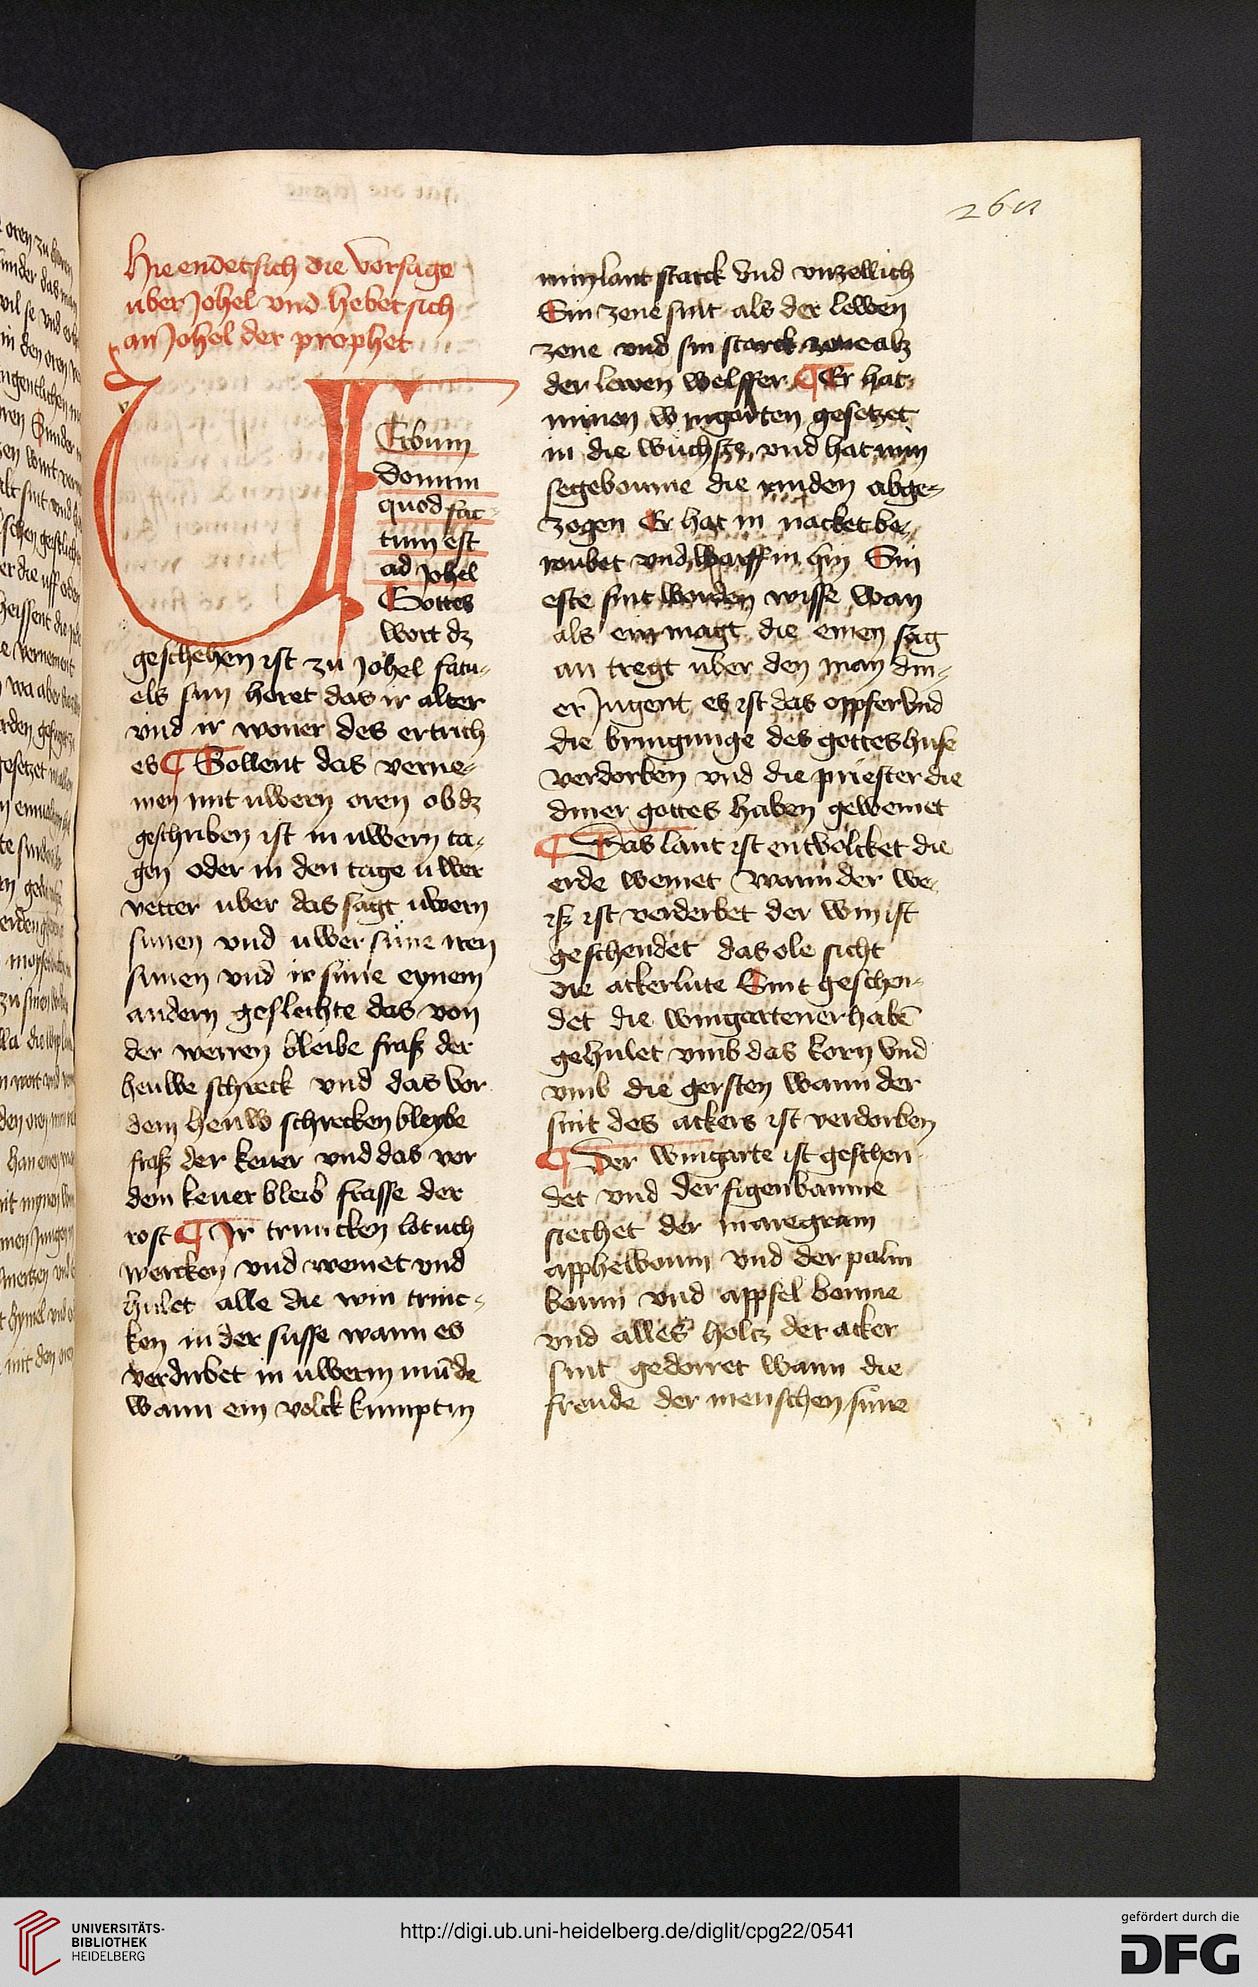 264
Hie endet sich die vorsage
uber Johel vnd hebet sich
an Johel der prophet
V
Erbum
domini
quod fac-
tum est
ad Johel
Gottes
wort dz
geschehen ist zu Johel fatu-
els sun horet das ir alter
vnd ir woner des ertrich
es Sollent das verne-
men mit uwern oren ob dz
geschriben ist in uwern ta-
gen oder in den tage uwer
vetter uber das sagt uwern
sunen vnd uwer sune iren
sunen vnd ir sune eynem
andern geslechte das von
der werren bleibe fraß der
heuwe schreck vnd das vor
dem heuw schrecken bleybe
fraß der keuer vnd das vor
dem keuer bleib frasse der
rost Ir truncken lotuch
wercken vnd weinet vnd
hulet alle die win trinc-
ken in der susse wann es
verdirbet in uwerm munde
wann ein volck kumpt in
min lant starck vnd vnzellich
Sin zene sint als der lewen
zene vnd sin starck zene alz
der lewen welffer Er hat
minen wingarten gesetzet
in die wüchsze vnd hat min
segeboume die rinden abge-
zogen Er hat in nacket be-
roubet vnd warff in hin Sin
este sint worden wisse wan
als ein magt die einen sag
an tregt uber den man din-
er Jugent es ist das oppfer vnd
die bringunge des gottes huse
verdorben vnd die priester die
diner gottes haben geweinet
Das lant ist entvolcket die
erde weinet wann der we-
iß ist verderbet der win ist
geschendet das ole sicht
die ackerlute Sint geschen-
det die wingartener habē
gehulet vmb das korn vnd
vmb die gersten wann der
snit des ackers ist verdorben
Der wingarte ist geschen-
det vnd der figenbaume
siechet der maregram
apphelboum vnd der palm
boum vnd appfel boume
vnd alles holcz der acker
sint gedorret wann die
freude der menschen sune
UNIVERSITÄTS-
BIBLIOTHEK
HEIDELBERG
http://digi.ub.uni-heidelberg.de/diglit/cpg22/0541
gefördert durch die
DFG